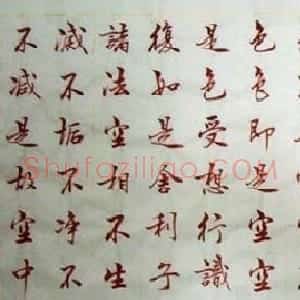 色色即是空空
是色受想行識
復如是舍利子
諸法空相不生
滅不垢不净不
不減是故空中
Shufaziliao.COM